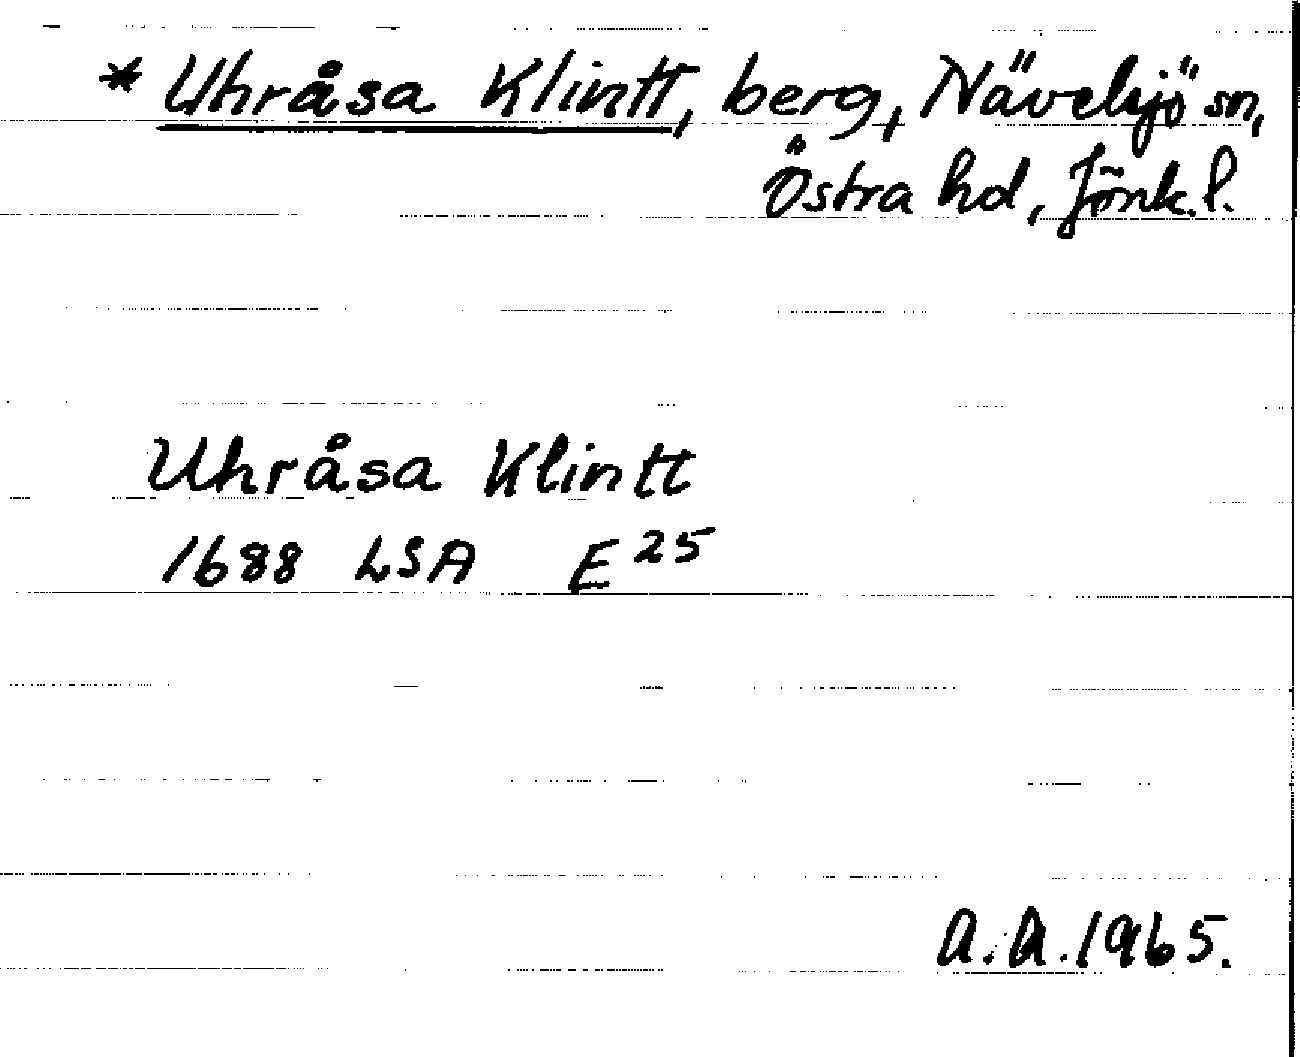 * Uhråsa Klintt, berg, Nävelsjö sn,
Östra hd, Jönk. l.
Uhråsa Klintt
1688 LSA E 25
A.A. 1965.